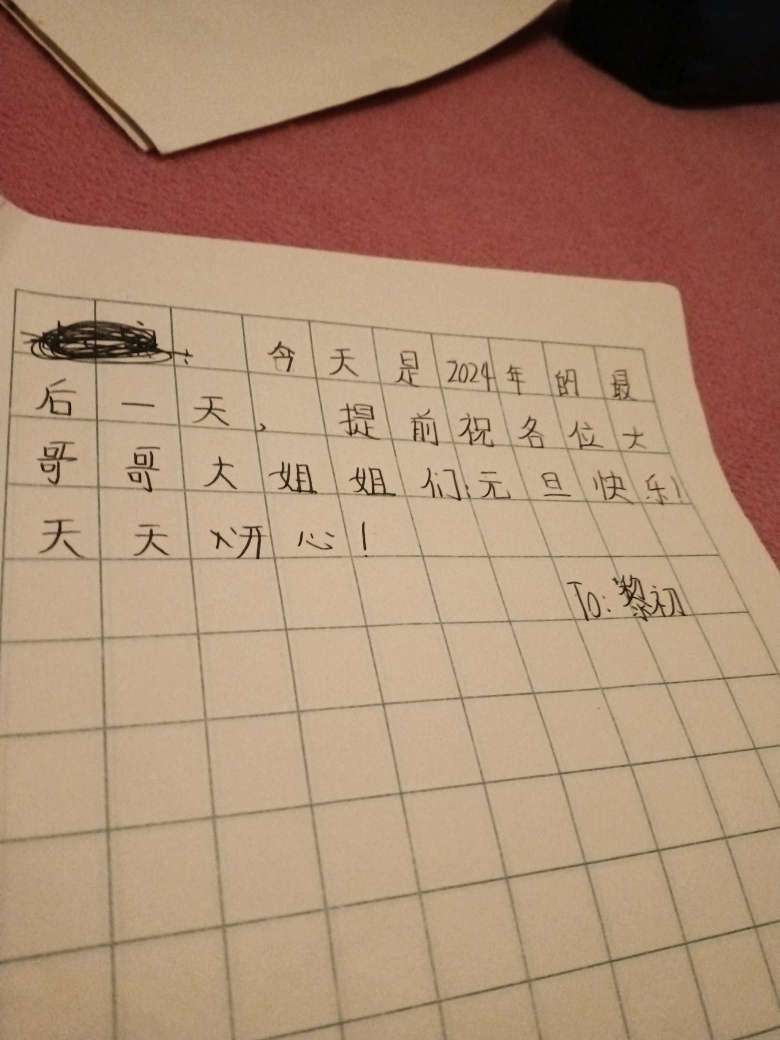 今天是2024年的最
后一天，提前祝各位大
哥哥大姐姐们:元旦快乐!
天天开心!
To:黎初